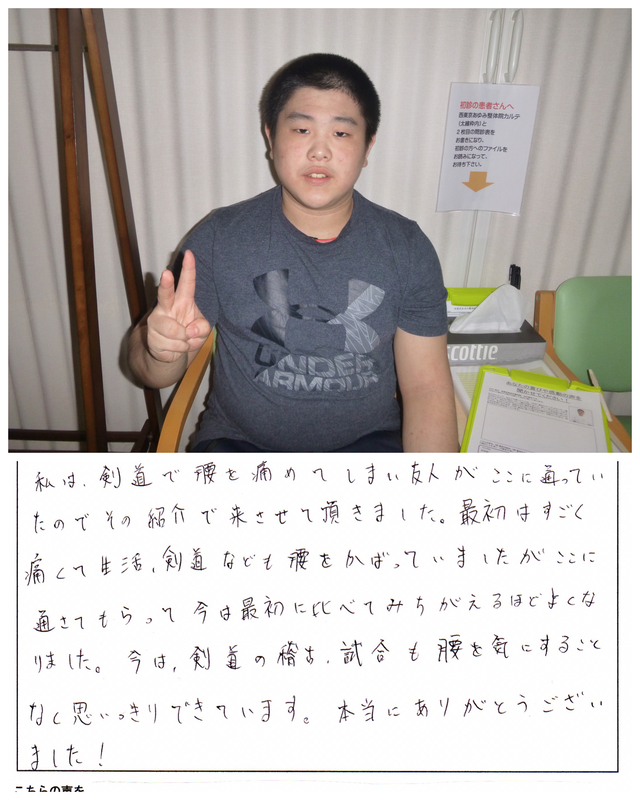 初診の患者さんへ
西東京あゆみ整体院カルテ
(太線枠内)と
2枚目の問診表を
お書きになり、
初診の方へのファイルを
お読みになって、
お待ち下さい。
UNDER
ARMOUR
scottie
あなたの喜びや感動の声を
聞かせてください!
私は、剣道で腰を痛めてしまい友人がここに通ってい
たのでその紹介で来させて頂きました。最初はすごく
痛くて生活、剣道なども腰をかばっていましたがここに
通さてもらって今は最初に比べてみちがえるほどよくな
りました。今は、剣道の稽古、試合も腰を気にすること
なく思いっきりできています。本当にありがとうござい
ました!
こちらの声を